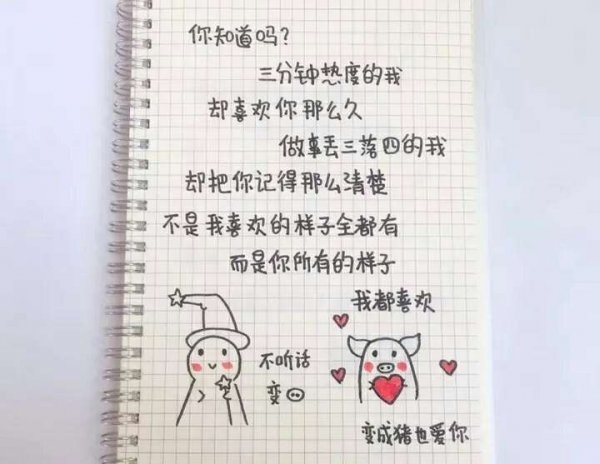 你知道吗?
三分钟热度的我
却喜欢你那么久
做事丢三落四的我
却把你记得那么清楚
不是我喜欢的样子全都有
而是你所有的样子
我都喜欢
不听话
变
变成猪也爱你